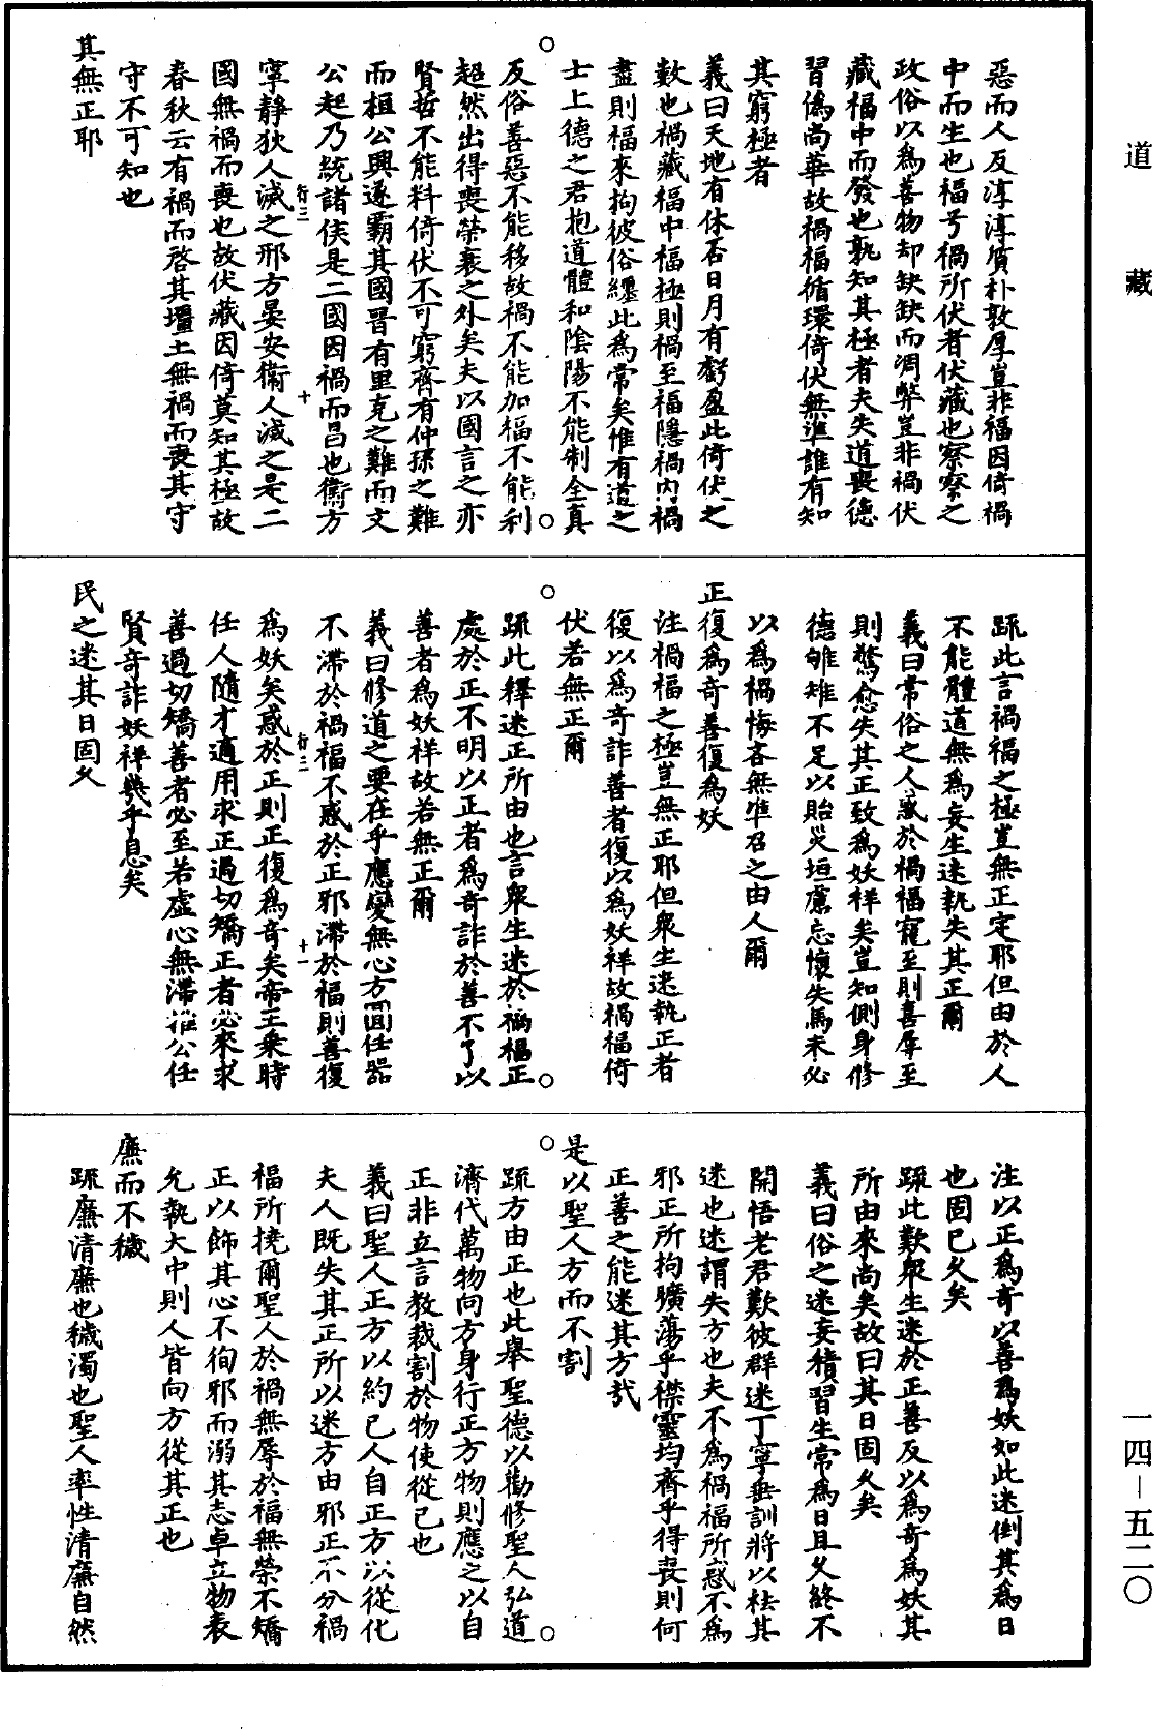 道藏
一四—五二〇
惡而人反淳淳質朴敦厚豈非福因倚禍
中而生也福兮禍所伏者伏藏也察察之
政俗以為善物却缺缺而凋弊豈非禍伏
藏福中而發也孰知其極者夫失道喪德
習偽尚華故禍福循環倚伏無準誰有知
其窮極者
義曰天地有休否日月有虧盈此倚伏之
數也禍藏福中福極則禍至福隱禍內禍
盡則福來拘彼俗纏此為常矣惟有道之
士上德之君抱道體和陰陽不能制全真
反俗善惡不能移故禍不能加福不能利
超然出得喪榮衰之外矣夫以國言之亦
賢哲不能料倚伏不可窮齊有仲孫之難
而桓公興遂霸其國晉有里克之難而文
公起乃統諸侯是二國因禍而昌也衛方
寧靜狄人滅之邢方晏安衛人滅之是二
國無禍而喪也故伏藏因倚莫知其極故
春秋云有禍而啓其壃土無禍而喪其守
守不可知也
其無正耶
疏此言禍福之極豈無正定耶但由於人
不能體道無為妄生迷執失其正爾
義曰常俗之人惑於禍福寵至則喜辱至
則驚愈失其正致為妖祥矣豈知側身修
德雊雉不足以貽災垣慮忘懷失馬未必
以為禍悔吝無準召之由人爾
正復為奇善復為妖
注禍福之極豈無正耶但眾生迷執正者
復以為奇詐善者復以為妖祥故禍福倚
伏若無正爾
疏此釋迷正所由也言眾生迷於禍福正
處於正不明以正者為奇詐於善不了以
善者為妖祥故若無正爾
義曰修道之要在乎應變無心方圓任器
不滯於禍福不惑於正邪滯於福則善復
為妖矣惑於正則正復為奇矣帝王乘時
任人隨才適用求正過切矯正者必來求
善過切矯善者必至若虛心無滯推公任
賢奇詐妖祥幾乎息矣
民之迷其日固久
注以正為奇以善為妖如此迷倒其為日
也固已久矣
疏此歎眾生迷於正善反以為奇為妖其
所由來尚矣故曰其日固久矣
義曰俗之迷妄積習生常為日且久終不
開悟老君歎彼群迷丁寧垂訓將以祛其
迷也迷謂失方也夫不為禍福所惑不為
邪正所拘曠蕩乎襟靈均齊乎得喪則何
正善之能迷其方哉
是以聖人方而不割
疏方由正也此舉聖德以勸修聖人弘道
濟代萬物向方身行正方物則應之以自
正非立言教裁割於物使從己也
義曰聖人正方以約己人自正方以從化
夫人既失其正所以迷方由邪正不分禍
福所撓爾聖人於禍無辱於福無榮不矯
正以飾其心不徇邪而溺其志卓立物表
允執大中則人皆向方從其正也
廉而不穢
疏廉清廉也穢濁也聖人率性清廉自然